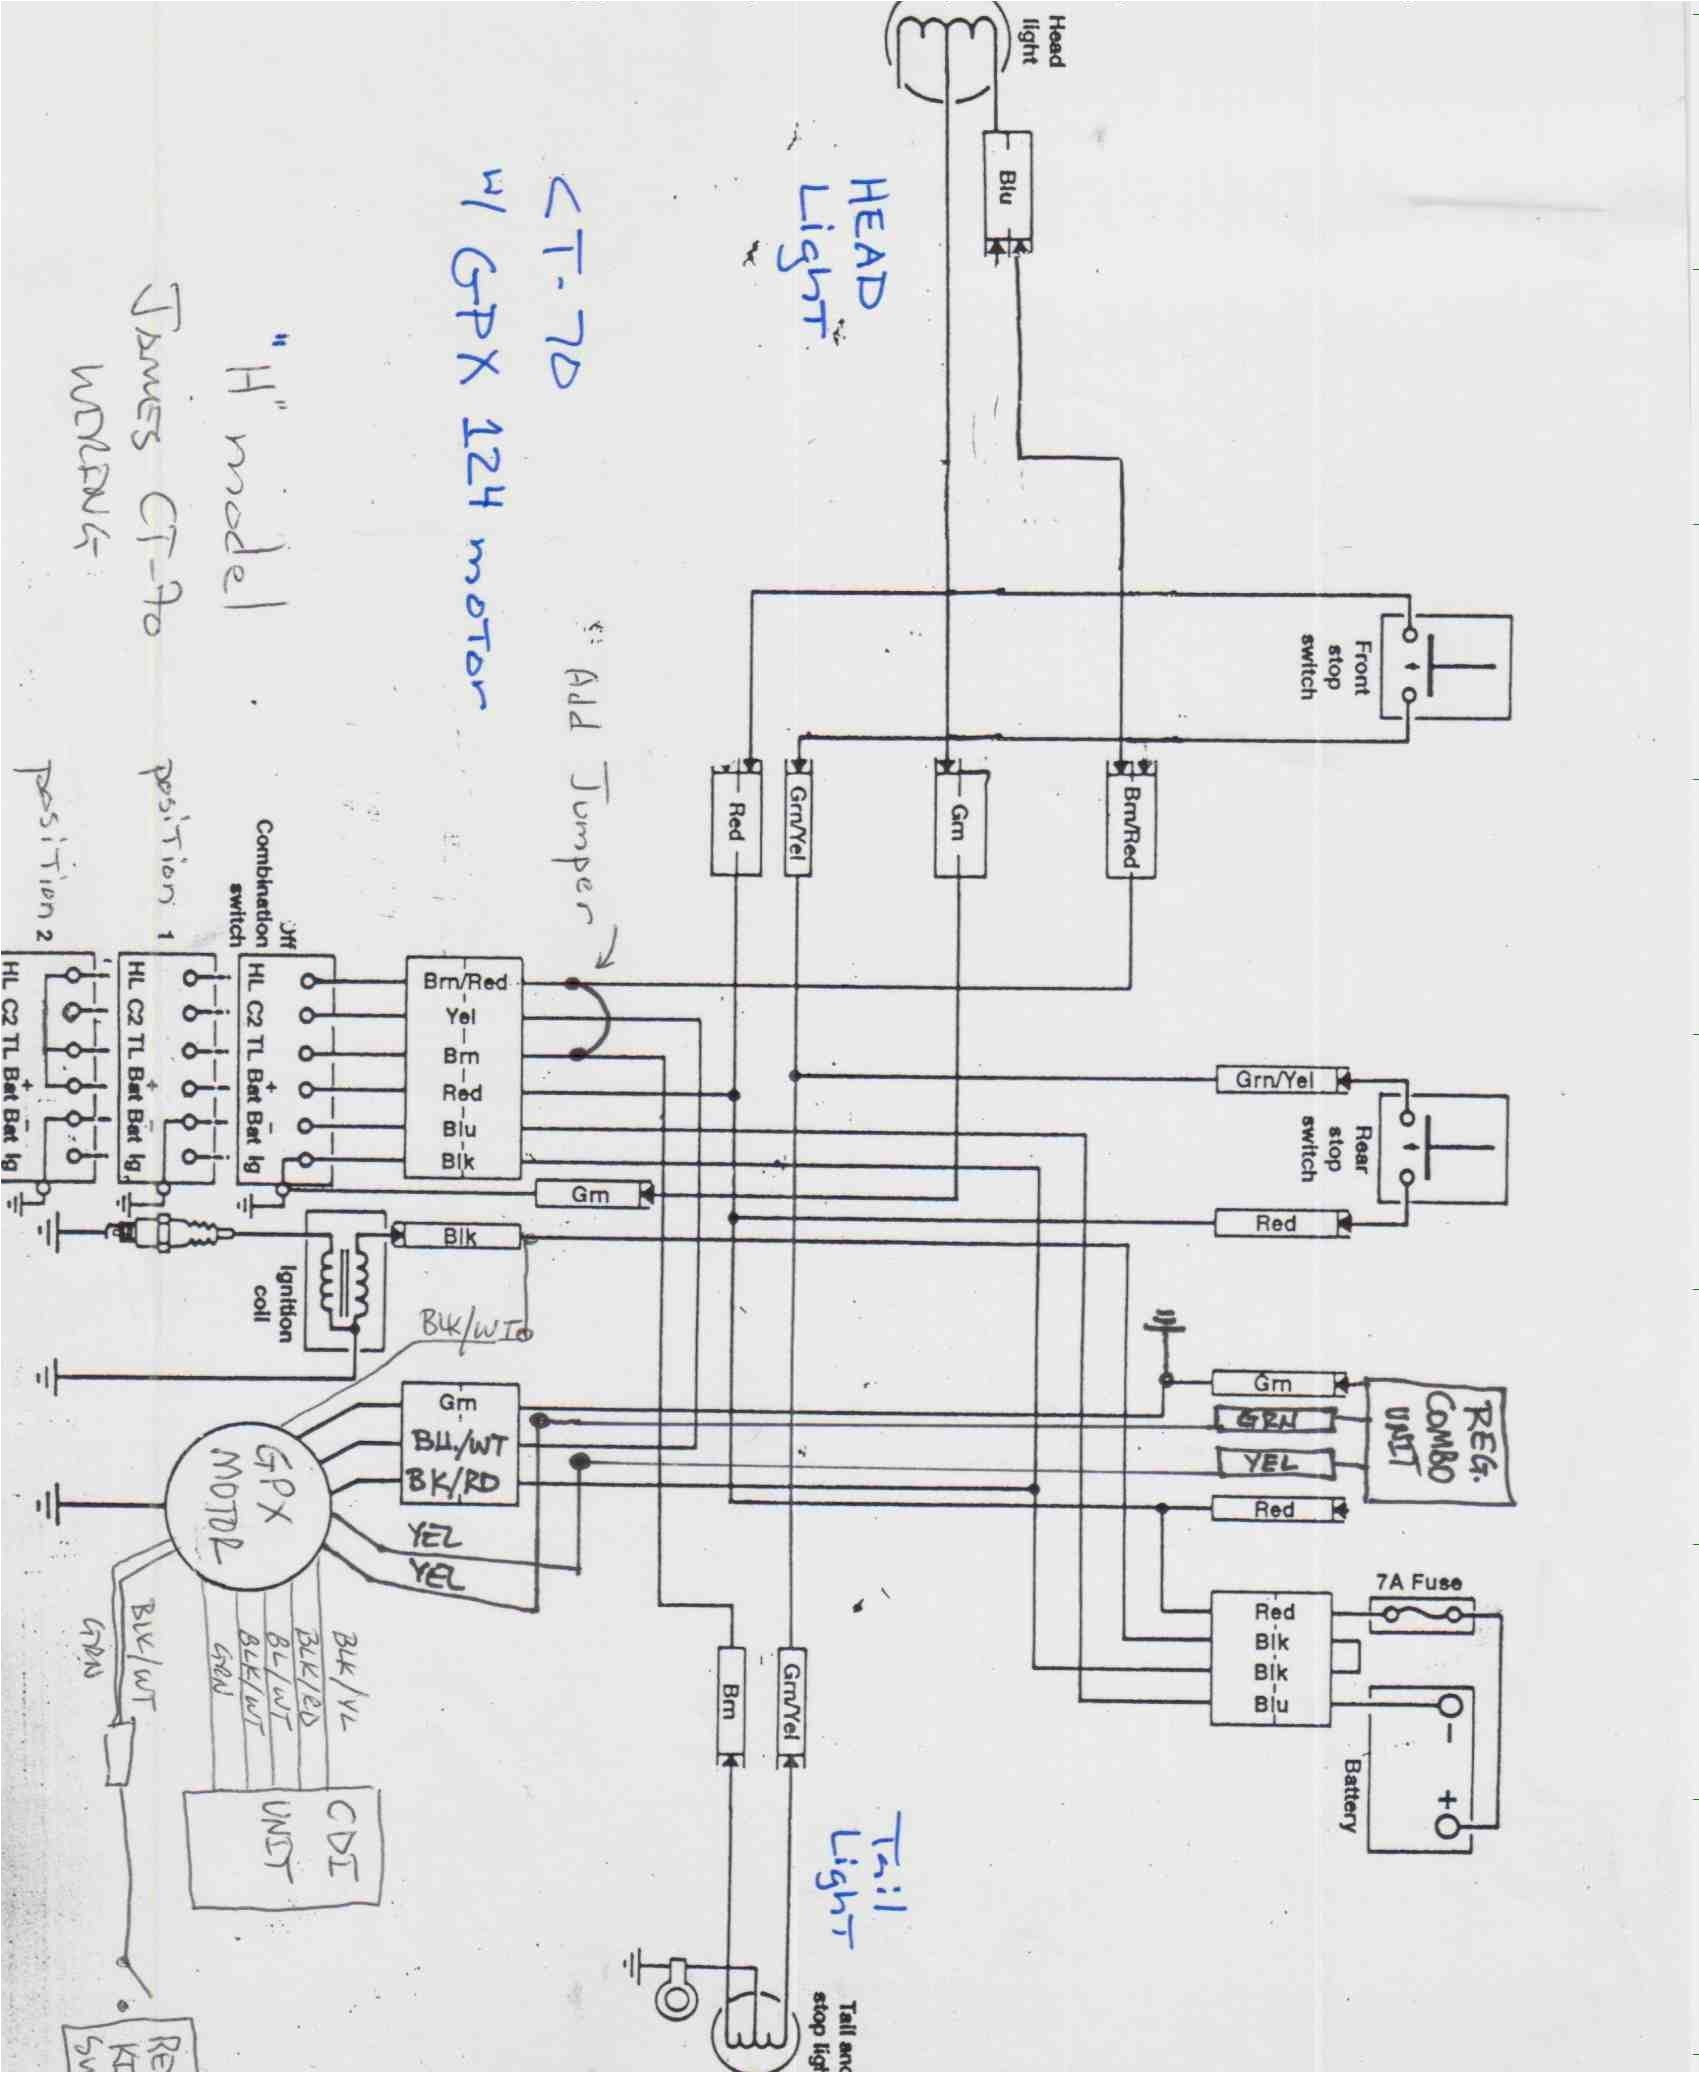 Head
light
Blu
HEAD
Light
CT-70
W/ GPX 124 moTor
"H" model
James CT-70
WIRING
Front
stop
switch
Add Jumper
Red
Grn/Yel
Grn
Brn/Red
position 1
position 2
Combination
switch
HL C2 TL Bat Bat Ig
+ -
HL C2 TL Bat Bat Ig
+ -
HL C2 TL Bat Bat Ig
+ -
Brn/Red
Yel
Brn
Red
Blu
Blk
Grn
Grn/Yel
Rear
stop
switch
Red
Blk
Ignition
coil
BLK/WT
Grn
BU./WT
BK/RD
Grn
GRN
YEL
Red
REG.
COMBO
UNIT
GPX
MOTOR
YEL
YEL
7A Fuse
Red
Blk
Blk
Blu
-
+
Battery
BLK/YL
BLK/RD
BL/WT
BLK/WT
GRN
BLK/WT
GRN
CDI
UNIT
Brn
Grn/Yel
Tail
Light
Tail and
stop